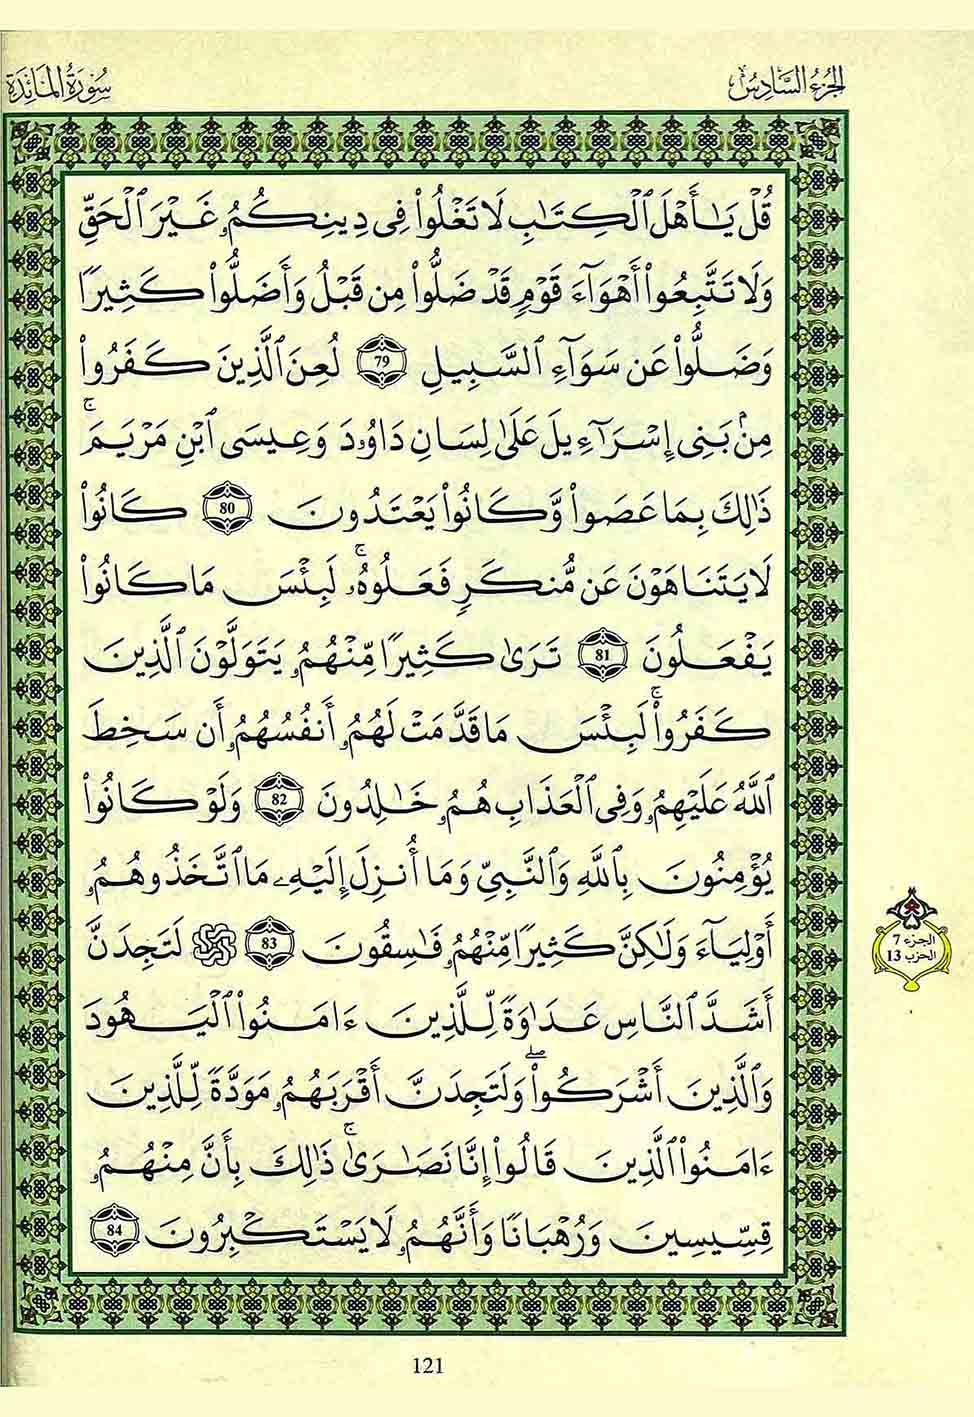 الجزء السادس
سورة المائدة
قُلۡ يَٰٓأَهۡلَ ٱلۡكِتَٰبِ لَا تَغۡلُواْ فِي دِينِكُمُۥ غَيۡرَ ٱلۡحَقِّ
وَلَا تَتَّبِعُوٓاْ أَهۡوَآءَ قَوۡمٖ قَدۡ ضَلُّواْ مِن قَبۡلُ وَأَضَلُّواْ كَثِيرٗا
وَضَلُّواْ عَن سَوَآءِ ٱلسَّبِيلِ 79 لُعِنَ ٱلَّذِينَ كَفَرُواْ
مِنۢ بَنِيٓ إِسۡرَآءِيلَ عَلَىٰ لِسَانِ دَاوُۥدَ وَعِيسَى ٱبۡنِ مَرۡيَمَۚ
ذَٰلِكَ بِمَا عَصَواْ وَّكَانُواْ يَعۡتَدُونَ 80 كَانُواْ
لَا يَتَنَاهَوۡنَ عَن مُّنكَرٖ فَعَلُوهُۥۚ لَبِئۡسَ مَا كَانُواْ
يَفۡعَلُونَ 81 تَرَىٰ كَثِيرٗا مِّنۡهُمُۥ يَتَوَلَّوۡنَ ٱلَّذِينَ
كَفَرُواْۚ لَبِئۡسَ مَا قَدَّمَتۡ لَهُمُۥٓ أَنفُسُهُمُۥٓ أَن سَخِطَ
ٱللَّهُ عَلَيۡهِمُۥ وَفِي ٱلۡعَذَابِ هُمُۥ خَٰلِدُونَ 82 وَلَوۡ كَانُواْ
يُؤۡمِنُونَ بِٱللَّهِ وَٱلنَّبِيِّ وَمَآ أُنزِلَ إِلَيۡهِۦ مَا ٱتَّخَذُوهُمُۥٓ
أَوۡلِيَآءَ وَلَٰكِنَّ كَثِيرٗا مِّنۡهُمُۥ فَٰسِقُونَ 83 لَتَجِدَنَّ
أَشَدَّ ٱلنَّاسِ عَدَٰوَةٗ لِّلَّذِينَ ءَامَنُواْ ٱلۡيَهُودَ
وَٱلَّذِينَ أَشۡرَكُواْۖ وَلَتَجِدَنَّ أَقۡرَبَهُمُۥ مَوَدَّةٗ لِّلَّذِينَ
ءَامَنُواْ ٱلَّذِينَ قَالُوٓاْ إِنَّا نَصَٰرَىٰۚ ذَٰلِكَ بِأَنَّ مِنۡهُمُۥ
قِسِّيسِينَ وَرُهۡبَانٗا وَأَنَّهُمُۥ لَا يَسۡتَكۡبِرُونَ 84
الجزء 7
الحزب 13
121